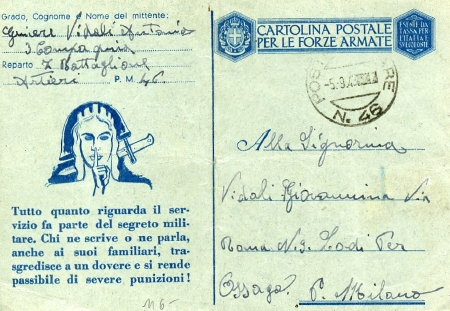 Grado, Cognome e Nome del mittente:
Geniere Vidali Antonio
3 Compagnia
Reparto 7 Battaglione
Artieri P. M. 46
Tutto quanto riguarda il ser-
vizio fa parte del segreto mili-
tare. Chi ne scrive o ne parla,
anche ai suoi familiari, tra-
sgredisce a un dovere e si rende
passibile di severe punizioni!
116-
CARTOLINA POSTALE
PER LE FORZE ARMATE
ESENTE DA
TASSA PER
L'ITALIA E
N. 46
Alla Signorina
Vidali Giovannina Via
Roma N. 3 Lodi Per
Ossago. P. Milano